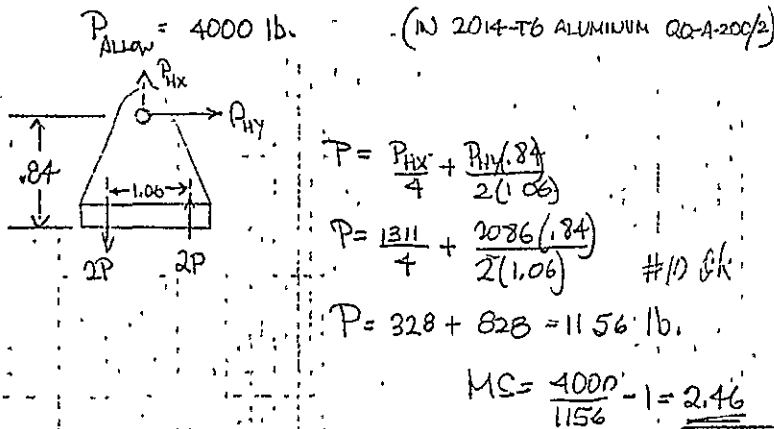 P_ALLOW = 4000 lb. (IN 2014-T6 ALUMINUM QQ-A-200/2)
P_HX
P_HY
.84
1.06
2P 2P
P = P_HX/4 + P_HY(.84)/2(1.06)
P = 1311/4 + 2086(.84)/2(1.06)
#10
P = 328 + 828 = 1156 lb.
MS = 4000/1156 - 1 = 2.46